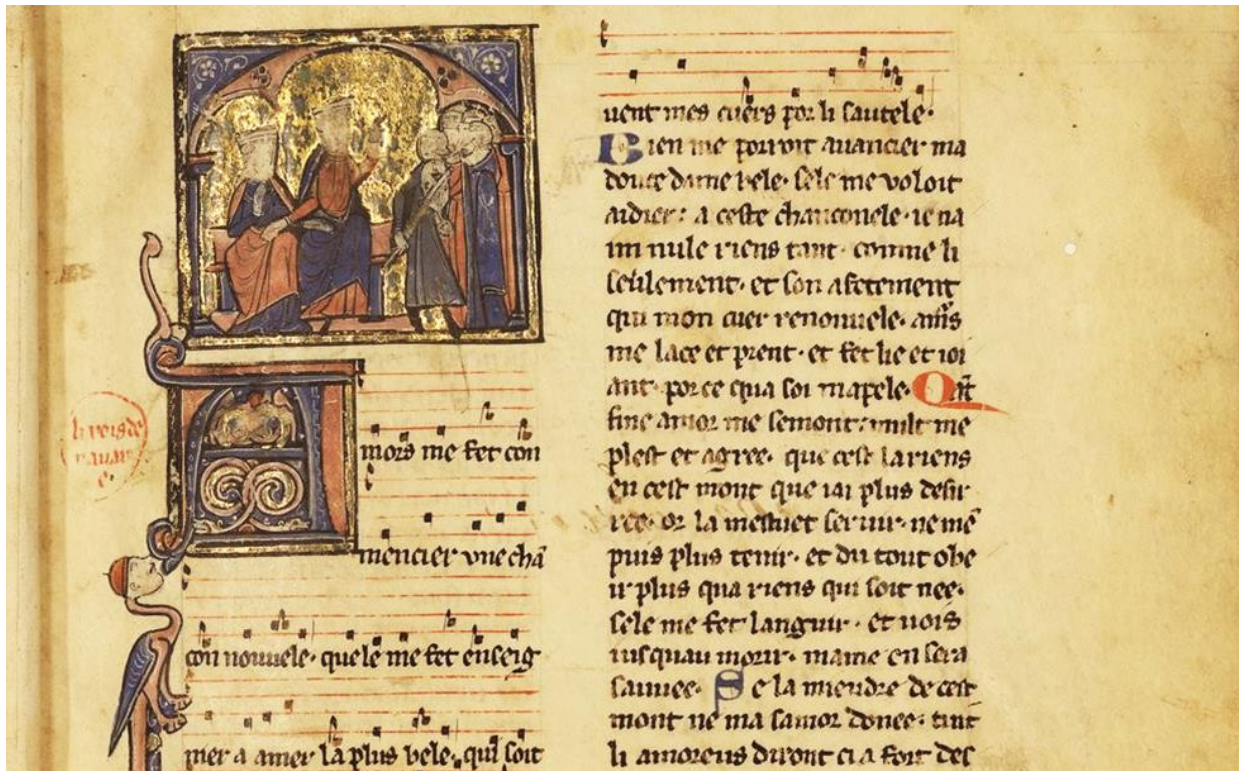 li rois de
navar
e.
Amors me fet con
mencier vne chā
con nouuele· quele me fet enseig
mer a amer la plus bele· qui soit
uent mes cuers por li sautele·
Bien me porroit auancier ma
douce dame bele· sele me voloit
aidier: a ceste chanconele· ie na
im nule riens tant· comme li
seulement· et son afetement
qui mon cuer renouuele· amrs
me lace et prent· et fet lie et ioi
ant· por ce qua soi mapele· Qāt
fine amor me semont: mult me
plest et agree· que cest la riens
en cest mont que iai plus desir
ree· or la mestuet seruir· ne mē
puis plus tenir· et du tout obe
ir plus qua riens qui soit nee·
sele me fet languir· et uois
iusquau morir· mame en sera
sauuee· Se la mieudre de cest
mont ne ma samor donee· tuit
li amoreus diront ci a fort des